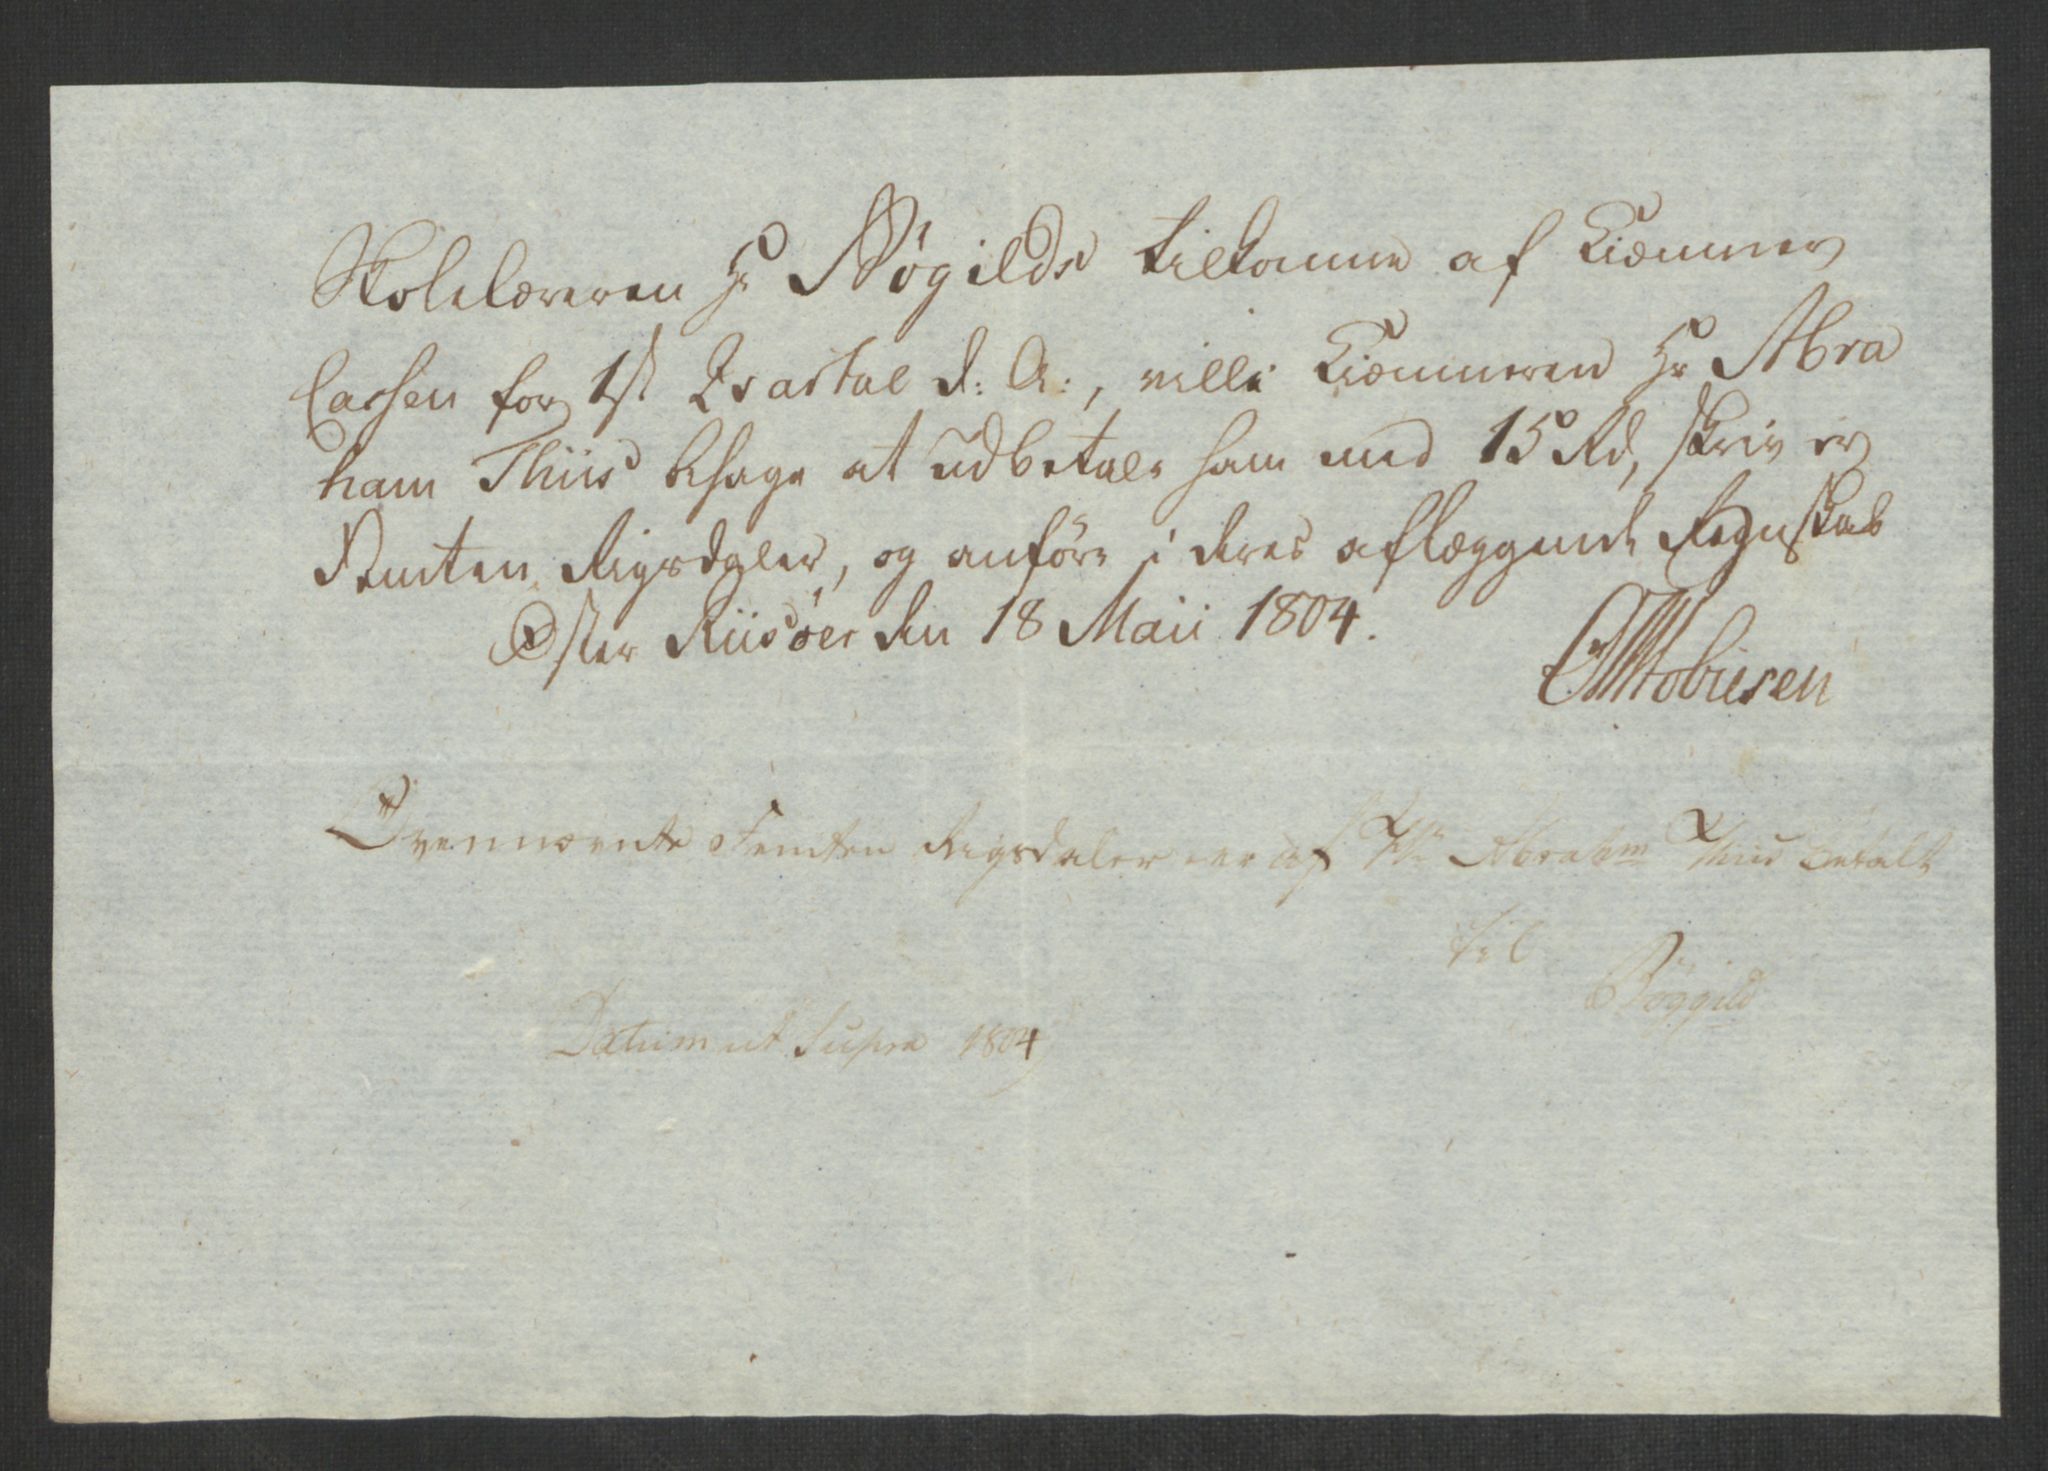 Skolelæreren Hr Bøgilds tilkomme af Kiæmner
Cassen for 1st Qvartal d: A:, ville Kiæmneren Hr Abra
ham Thiis behage at udbetale ham med 15 Rd, skriv er
Femten Rigsdaler, og anføre i deres aflæggende Regnskab
Øster Riisøer den 18 Maii 1804.
Ovennævnte Femten Rigsdaler er af Hr Abrahm Thiis betalt
til
Bøggild
Datum ut Supra 1804